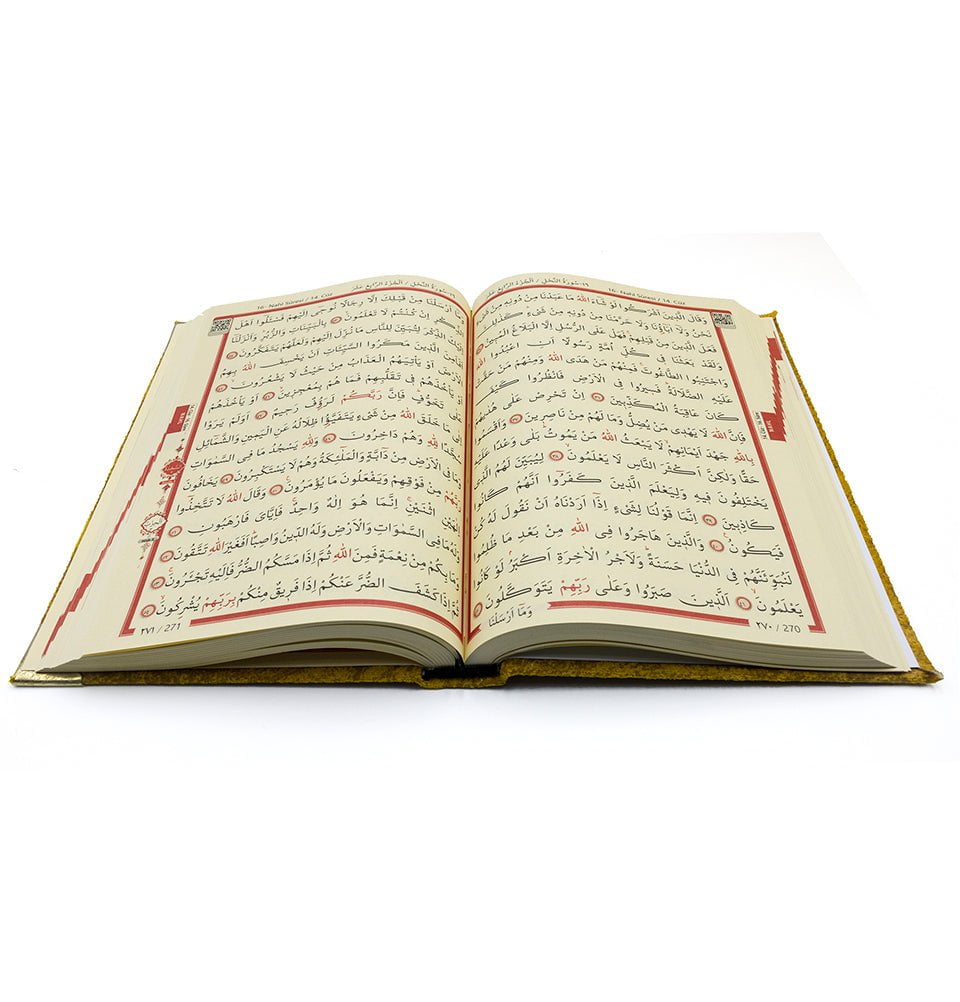 16- Nahl Sûresi / 14. Cüz
١٦-سُورَةُ النَّحْلِ / اَلْجُزْءُ الرَّابِعَ عَشَرَ
وَقَالَ الَّذ۪ينَ اَشْرَكُوا لَوْ شَٓاءَ اللّٰهُ مَا عَبَدْنَا مِنْ دُونِه۪ مِنْ
نَحْنُ وَلَٓا اٰبَٓاؤُ۬نَا وَلَا حَرَّمْنَا مِنْ دُونِه۪ مِنْ شَيْءٍۜ كَذٰلِكَ
فَعَلَ الَّذ۪ينَ مِنْ قَبْلِهِمْۚ فَهَلْ عَلَى الرُّسُلِ اِلَّا الْبَلَاغُ
وَلَقَدْ بَعَثْنَا ف۪ي كُلِّ اُمَّةٍ رَسُولًا اَنِ اعْبُدُوا اللّٰهَ
وَاجْتَنِبُوا الطَّاغُوتَۚ فَمِنْهُمْ مَنْ هَدَى اللّٰهُ وَمِنْهُمْ مَنْ
عَلَيْهِ الضَّلَالَةُۜ فَس۪يرُوا فِي الْاَرْضِ فَانْظُرُوا
كَانَ عَاقِبَةُ الْمُكَذِّب۪ينَ ٣٦ اِنْ تَحْرِصْ عَلٰى
فَاِنَّ اللّٰهَ لَا يَهْد۪ي مَنْ يُضِلُّ وَمَا لَهُمْ مِنْ نَاصِر۪ينَ ٣٧
بِاللّٰهِ جَهْدَ اَيْمَانِهِمْۙ لَا يَبْعَثُ اللّٰهُ مَنْ يَمُوتُۜ بَلٰى وَعْدًا
حَقًّا وَلٰكِنَّ اَكْثَرَ النَّاسِ لَا يَعْلَمُونَۙ ٣٨ لِيُبَيِّنَ لَهُمُ
يَخْتَلِفُونَ ف۪يهِ وَلِيَعْلَمَ الَّذ۪ينَ كَفَرُٓوا اَنَّهُمْ
كَاذِب۪ينَ ٣٩ اِنَّمَا قَوْلُنَا لِشَيْءٍ اِذَٓا اَرَدْنَاهُ اَنْ نَقُولَ لَهُ
فَيَكُونُ۟ ٤٠ وَالَّذ۪ينَ هَاجَرُوا فِي اللّٰهِ مِنْ بَعْدِ مَا ظُلِمُوا
لَنُبَوِّئَنَّهُمْ فِي الدُّنْيَا حَسَنَةًۜ وَلَاَجْرُ الْاٰخِرَةِ اَكْبَرُۢ لَوْ كَانُوا
يَعْلَمُونَۙ ٤١ اَلَّذ۪ينَ صَبَرُوا وَعَلٰى رَبِّهِمْ يَتَوَكَّلُونَ ٤٢
وَمَٓا اَرْسَلْنَا
٢٧٠ / 270
16- Nahl Sûresi / 14. Cüz
١٦-سُورَةُ النَّحْلِ / اَلْجُزْءُ الرَّابِعَ عَشَرَ
مِنْ قَبْلِكَ اِلَّا رِجَالًا نُوح۪ٓي اِلَيْهِمْ فَسْـَٔلُٓوا اَهْلَ
الذِّكْرِ اِنْ كُنْتُمْ لَا تَعْلَمُونَۙ ٤٣ بِالْبَيِّنَاتِ وَالزُّبُرِۜ وَاَنْزَلْنَٓا
الذِّكْرَ لِتُبَيِّنَ لِلنَّاسِ مَا نُزِّلَ اِلَيْهِمْ وَلَعَلَّهُمْ يَتَفَكَّرُونَ ٤٤
الَّذ۪ينَ مَكَرُوا السَّيِّـَٔاتِ اَنْ يَخْسِفَ اللّٰهُ بِهِمُ
الْاَرْضَ اَوْ يَأْتِيَهُمُ الْعَذَابُ مِنْ حَيْثُ لَا يَشْعُرُونَۙ ٤٥
يَأْخُذَهُمْ ف۪ي تَقَلُّبِهِمْ فَمَا هُمْ بِمُعْجِز۪ينَۙ ٤٦ اَوْ يَأْخُذَهُمْ
عَلٰى تَخَوُّفٍۜ فَاِنَّ رَبَّكُمْ لَرَؤُ۫فٌ رَح۪يمٌ ٤٧ اَوَلَمْ يَرَوْا
اِلٰى مَا خَلَقَ اللّٰهُ مِنْ شَيْءٍ يَتَفَيَّؤُ۬ا ظِلَالُهُ عَنِ الْيَم۪ينِ وَالشَّمَٓائِلِ
لِلّٰهِ وَهُمْ دَاخِرُونَ ٤٨ وَلِلّٰهِ يَسْجُدُ مَا فِي السَّمٰوَاتِ
وَمَا فِي الْاَرْضِ مِنْ دَٓابَّةٍ وَالْمَلٰٓئِكَةُ وَهُمْ لَا يَسْتَكْبِرُونَ ٤٩ يَخَافُونَ
رَبَّهُمْ مِنْ فَوْقِهِمْ وَيَفْعَلُونَ مَا يُؤْمَرُونَ۟ ٥٠ وَقَالَ اللّٰهُ لَا تَتَّخِذُٓوا
اِلٰهَيْنِ اثْنَيْنِۚ اِنَّمَا هُوَ اِلٰهٌ وَاحِدٌۚ فَاِيَّايَ فَارْهَبُونِ ٥١
وَلَهُ مَا فِي السَّمٰوَاتِ وَالْاَرْضِ وَلَهُ الدّ۪ينُ وَاصِبًاۜ اَفَغَيْرَ اللّٰهِ تَتَّقُونَ ٥٢
وَمَا بِكُمْ مِنْ نِعْمَةٍ فَمِنَ اللّٰهِ ثُمَّ اِذَا مَسَّكُمُ الضُّرُّ فَاِلَيْهِ تَجْـَٔرُونَۚ ٥٣
ثُمَّ اِذَا كَشَفَ الضُّرَّ عَنْكُمْ اِذَا فَر۪يقٌ مِنْكُمْ بِرَبِّهِمْ يُشْرِكُونَۙ ٥٤
٢٧١ / 271